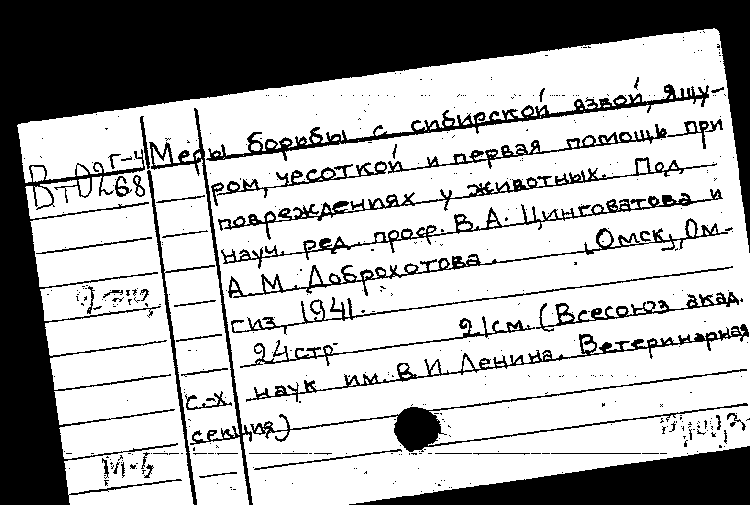 Меры борьбы с сибирской язвой, ящу-
ром, чесоткой и первая помощь при
повреждениях у животных. Под
науч. ред. проф. В.А. Цинговатова и
А.М. Доброхотова. [Омск], Ом-
гиз, 1941.
24 стр 21 см. (Всесоюз акад.
с.-х. наук им. В.И. Ленина. Ветеринарная
секция)
М-6